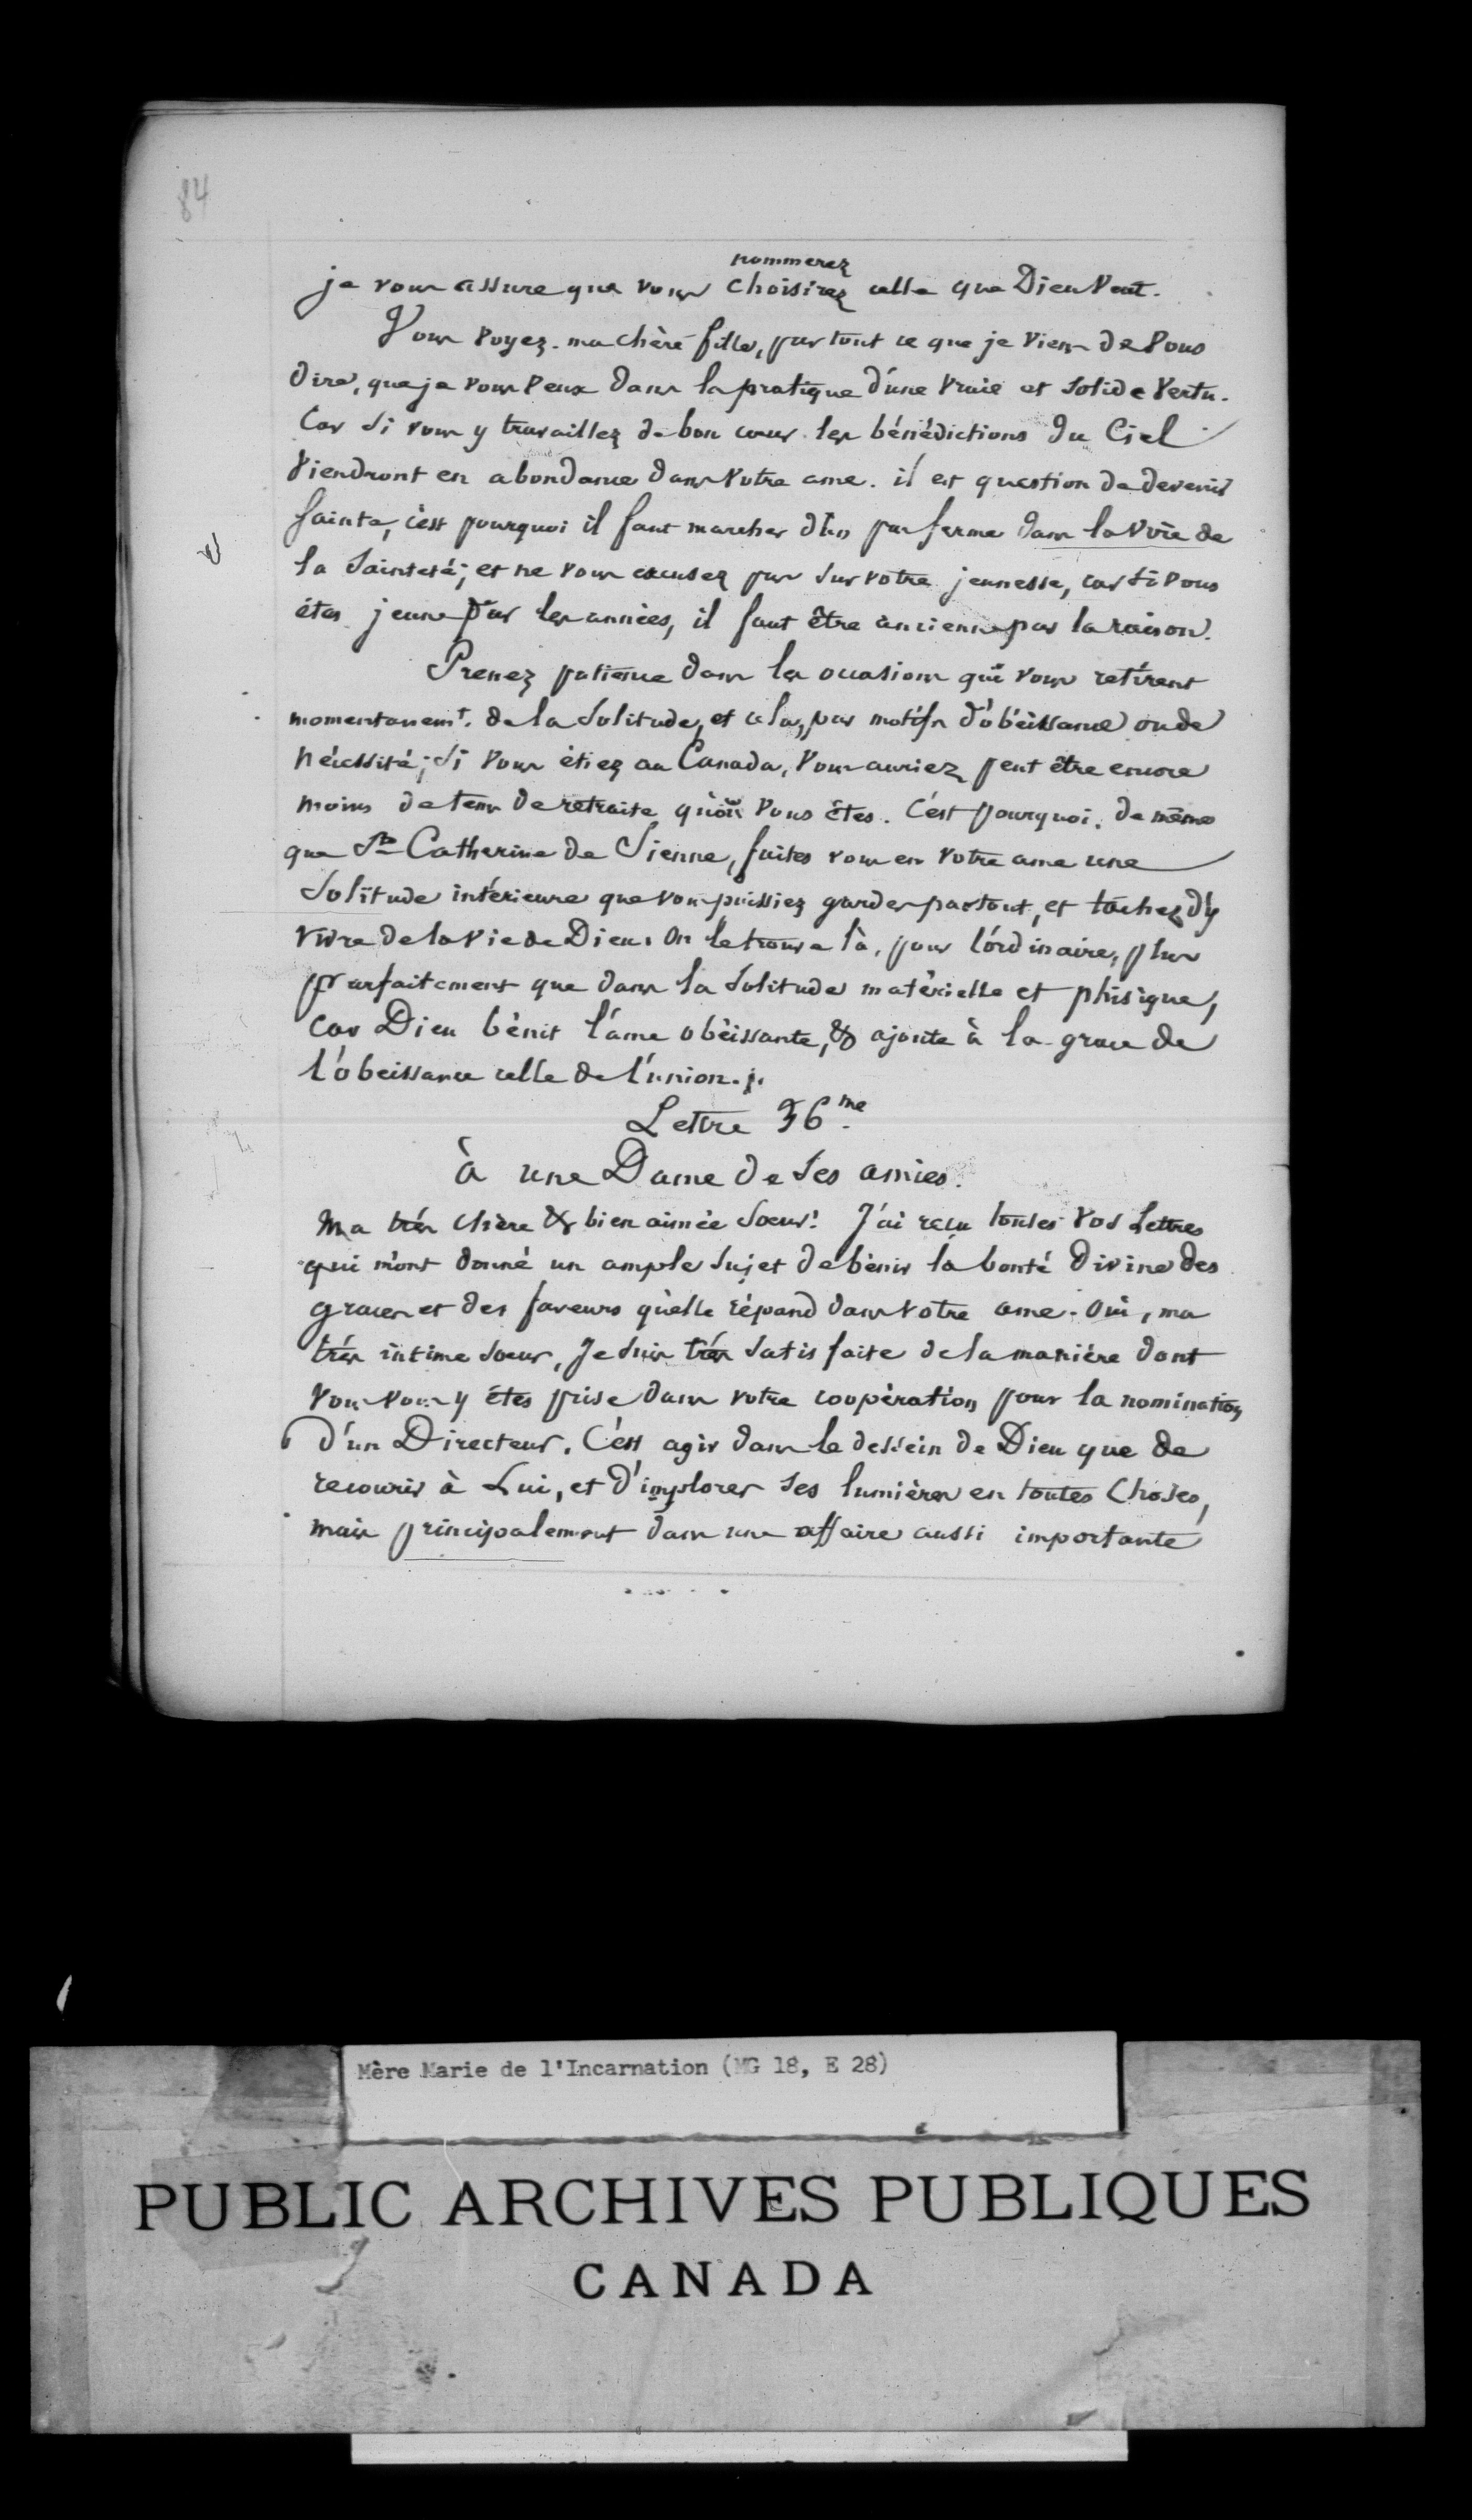 84
nommerez
je vous assure que vous choisirez celle que Dieu veut.
Vous voyez, ma chère fille, par tout ce que je viens de vous
dire, que je vous veux dans la pratique d'une vraie et solide vertu.
Car si vous y travaillez de bon cœur les bénédictions du Ciel
viendront en abondance dans votre ame. il est question de devenir
Sainte, c'est pourquoi il faut marcher d'un pas ferme dans la voie de
la Sainteté; et ne vous excusez pas sur votre jeunesse, car si vous
êtes jeune par les années, il faut être ancienne par la raison.
Prenez patience dans les occasions qui vous retirent
momentanemt. de la solitude, et cela, par motifs d'obéissance ou de
nécessité; si vous étiez au Canada, vous auriez peut être encore
moins de tems de retraite qu'où vous êtes. C'est pourquoi, de même
que Ste Catherine de Sienne, faites vous en votre ame une
solitude intérieure que vous puissiez garder partout, et tachez d'y
vivre de la vie de Dieu. On le trouve là, pour l'ordinaire, plus
parfaitement que dans la solitude matérielle et phisique,
car Dieu bénit l'ame obéissante, & ajoute à la grace de
l'obeissance celle de l'union.
Lettre 36me.
à une Dame de ses amies.
Ma très chère & bien aimée Sœur! J'ai reçu toutes vos Lettres
qui m'ont donné un ample sujet de bénir la bonté Divine des
graces et des faveurs qu'elle répand dans votre ame. Oui, ma
très intime sœur, Je suis très satisfaite de la manière dont
vous vous y êtes prise dans votre coopération pour la nomination
d'un Directeur. C'est agir dans le dessein de Dieu que de
recourir à Lui, et d'implorer ses lumières en toutes choses,
mais principalement dans une affaire aussi importante
Mère Marie de l'Incarnation (MG 18, E 28)
PUBLIC ARCHIVES PUBLIQUES
CANADA